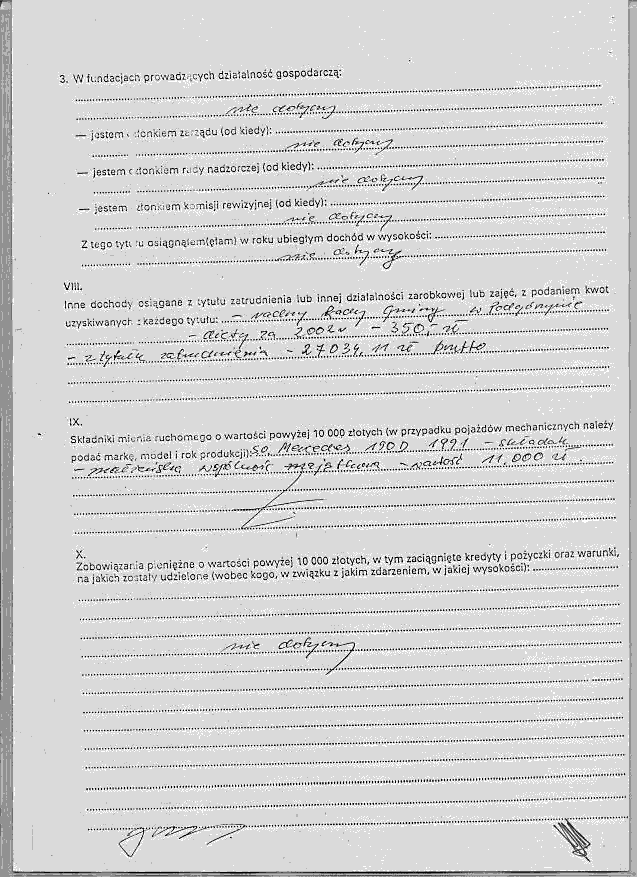 3. W fundacjach prowadzących działalność gospodarczą:
nie dotyczy
— jestem członkiem zarządu (od kiedy):
nie dotyczy
— jestem członkiem rady nadzorczej (od kiedy):
nie dotyczy
— jestem członkiem komisji rewizyjnej (od kiedy):
nie dotyczy
Z tego tytułu osiągnąłem(ęłam) w roku ubiegłym dochód w wysokości:
nie dotyczy
VIII.
Inne dochody osiągane z tytułu zatrudnienia lub innej działalności zarobkowej lub zajęć, z podaniem kwot
uzyskiwanych z każdego tytułu: – radny Rady Gminy w Podgórzynie
– diety za 2002r – 350,- zł
– z tytułu zatrudnienia – 27034,11 zł brutto
IX.
Składniki mienia ruchomego o wartości powyżej 10 000 złotych (w przypadku pojazdów mechanicznych należy
podać markę, model i rok produkcji): S.O. Mercedes 190D 1991 – składak
– małżeńska wspólność majątkowa – wartość 11.000 zł
X.
Zobowiązania pieniężne o wartości powyżej 10 000 złotych, w tym zaciągnięte kredyty i pożyczki oraz warunki,
na jakich zostały udzielone (wobec kogo, w związku z jakim zdarzeniem, w jakiej wysokości):
nie dotyczy